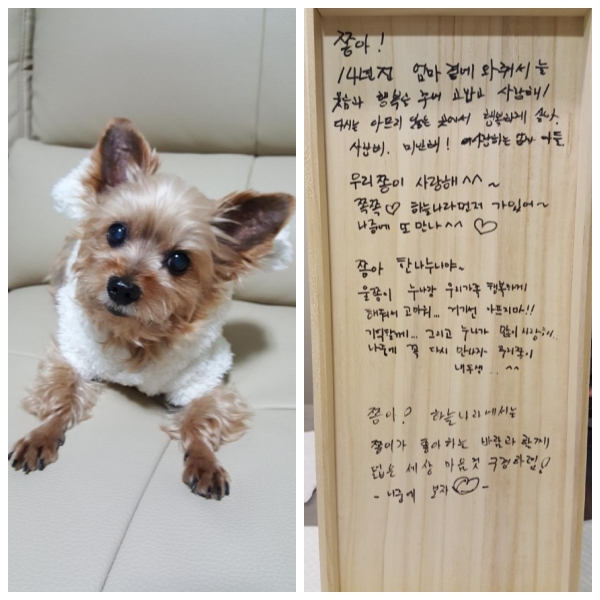 쫑아!
14년전 엄마 곁에 와줘서 늘
웃음과 행복을 주어 고맙고 사랑해!
다시는 아프지 않는 곳에서 행복하게 살아.
사랑해. 미안해! 사랑하는 엄마
우리 쫑이 사랑해^^~
쪽쪽♡ 하늘나라 먼저 가있어~
나중에 또 만나^^ ♡
쫑아 한나누나야~
울쫑이 누나랑 우리가족 행복하게
해줘서 고마워... 거기선 아프지마!!
기억할게... 그리고 누나가 많이 사랑해..
나중에 꼭 다시 만나자 우리쫑이
내동생.. ^^
쫑아! 하늘나라에서는
쫑이가 좋아하는 바람과 함께
넓은 세상 마음껏 구경하렴!
- 나중에 보자♡-